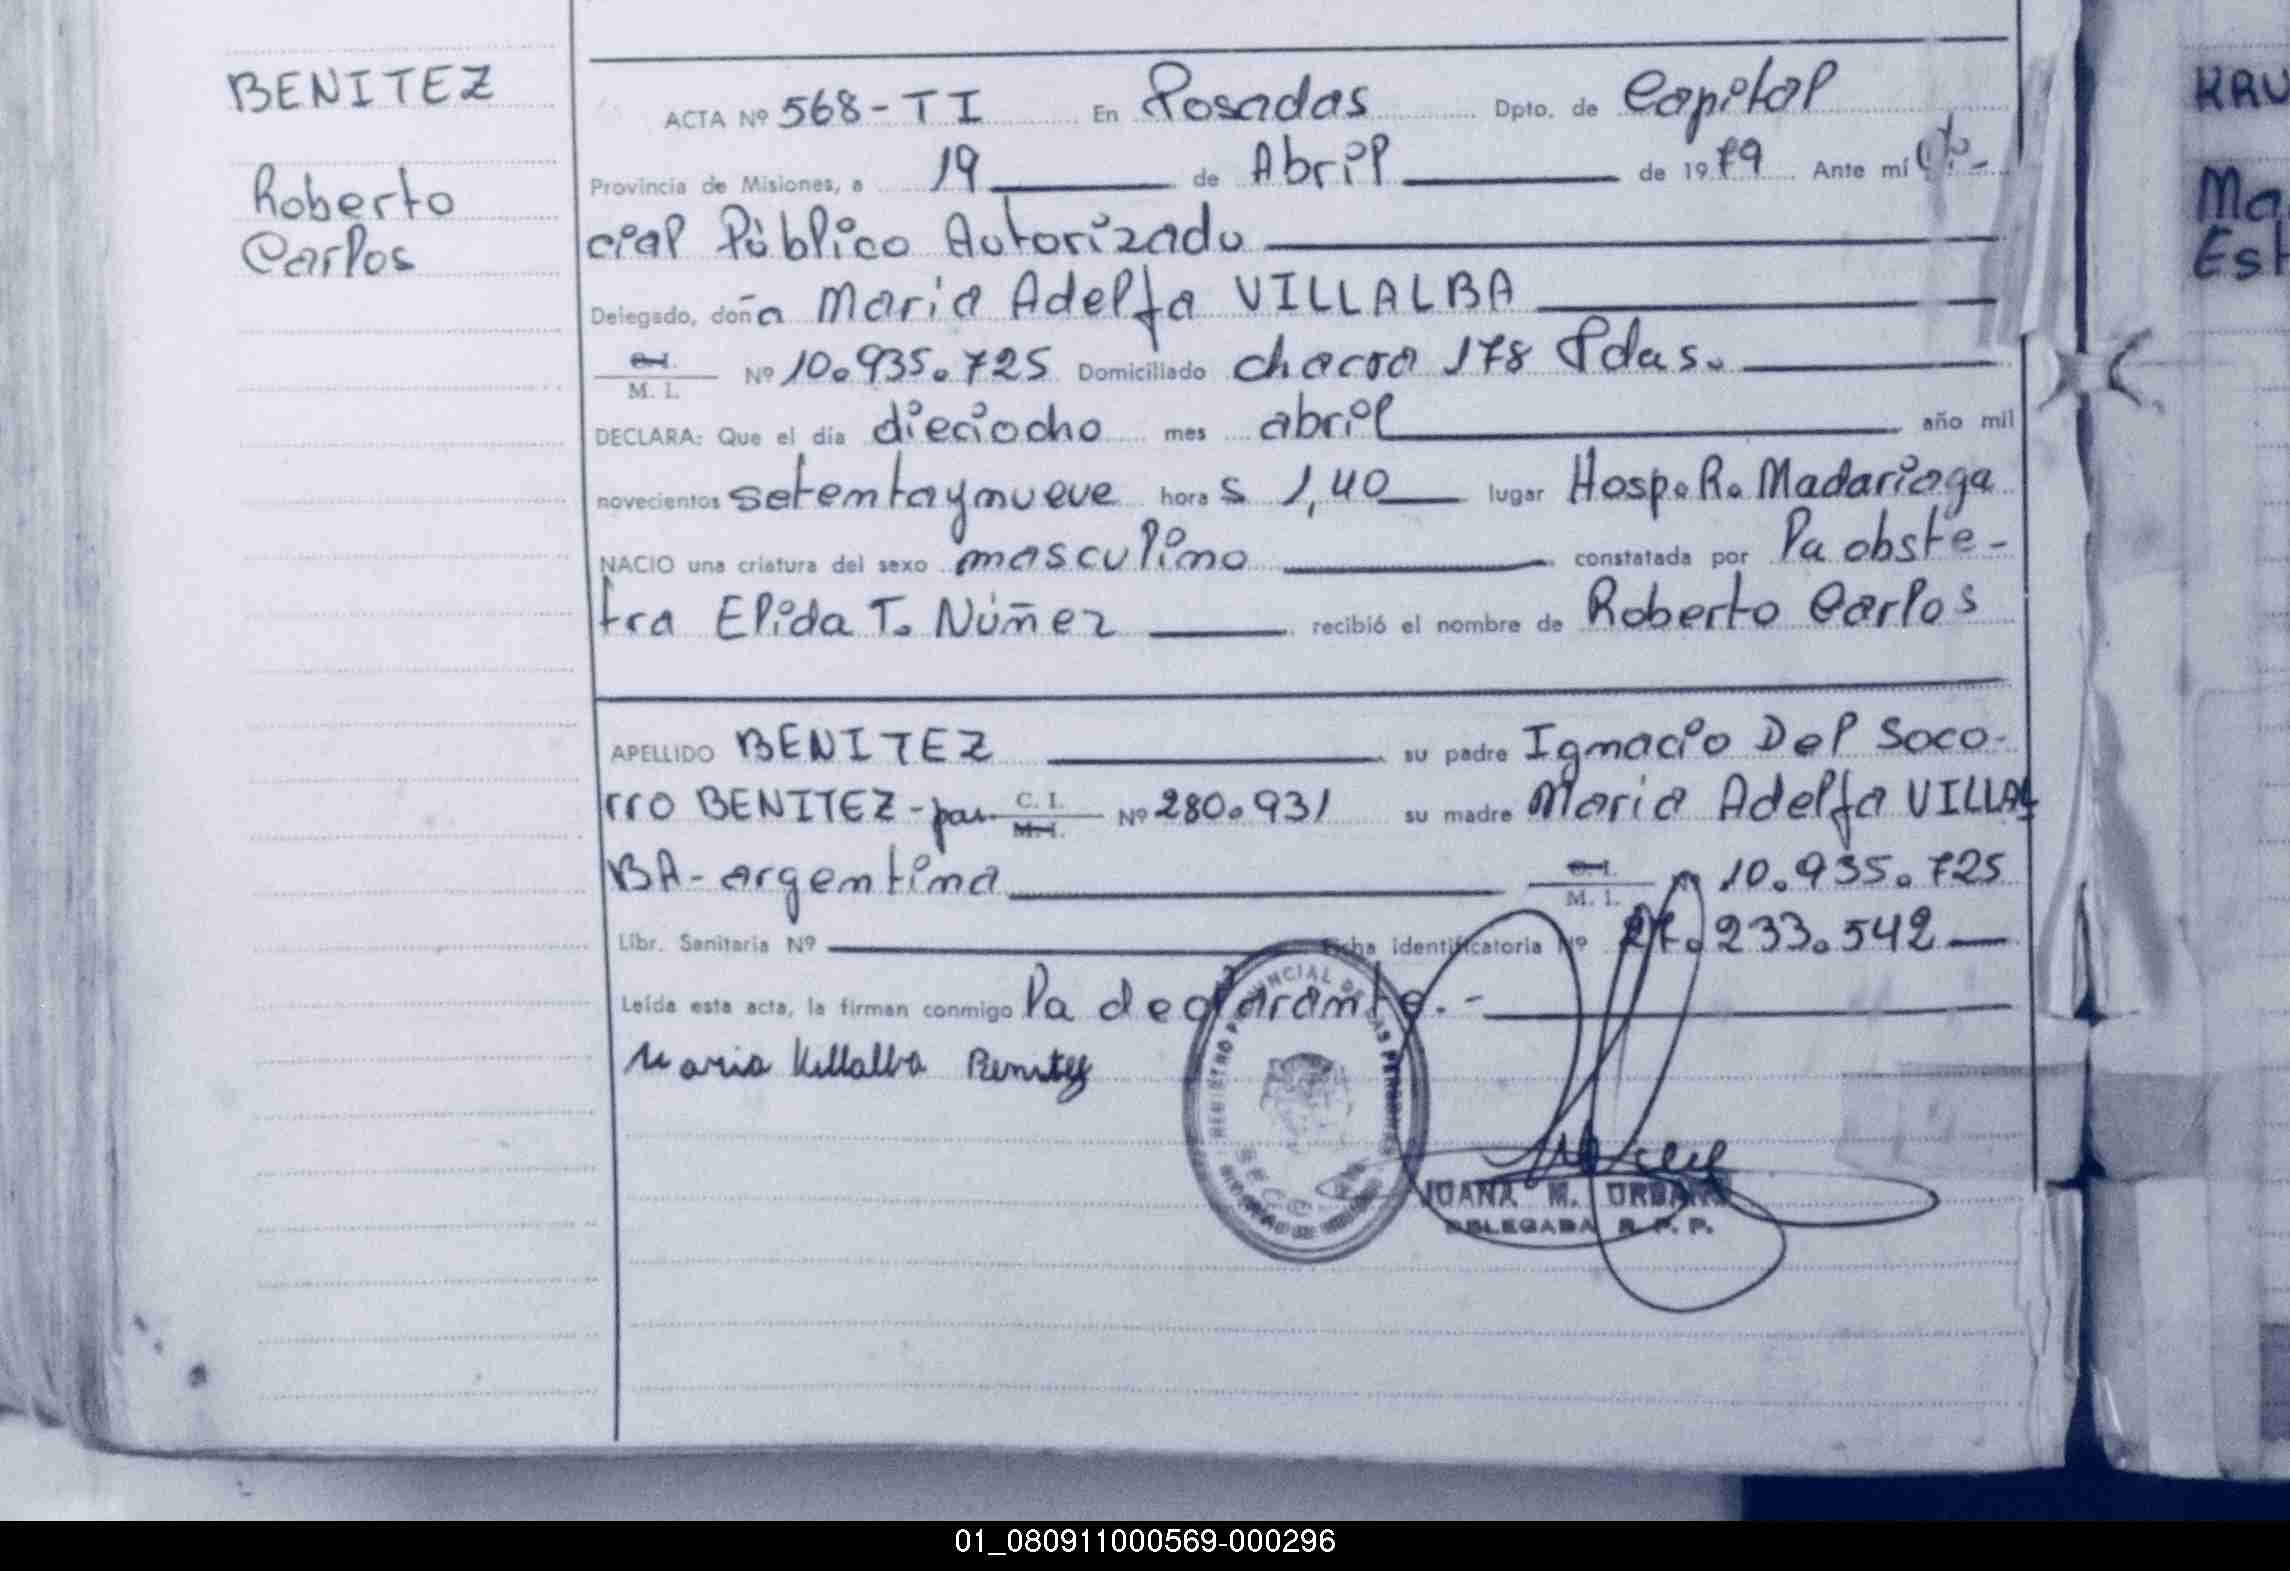 BENITEZ
Roberto
Carlos
ACTA Nº 568-TI En Posadas Dpto. de Capital
Provincia de Misiones, a 19 de Abril de 1979 Ante mí Ofi-
cial Público Autorizado
Delegado, doña Maria Adelfa VILLALBA
C.I.
M. I. Nº 10.935.725 Domiciliado chacra 178 Pdas.
DECLARA: Que el día dieciocho mes abril año mil
novecientos setentaynueve hora s 1,40 lugar Hosp. R. Madariaga
NACIO una criatura del sexo masculino constatada por la obste-
tra Elida T. Núñez recibió el nombre de Roberto Carlos
APELLIDO BENITEZ su padre Ignacio Del Soco-
rro BENITEZ - par. C. I. M.I. Nº 280.931 su madre Maria Adelfa VILLAL
BA - argentina C.I. M. I. 10.935.725
Libr. Sanitaria Nº Ficha identificatoria Nº 27.233.542
Leída esta acta, la firman conmigo la declarante. -
Maria Villalba Benitez
REGISTRO PROVINCIAL DE LAS PERSONAS
JUANA M. URBANO
DELEGADA R. P. P.
KRU
Ma
Est
01_080911000569-000296